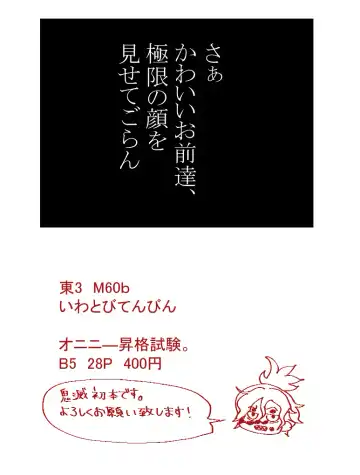 さぁ
かわいいお前達、
極限の顔を
見せてごらん
東3 M60b
いわとびてんぴん
オニニ―昇格試験。
B5 28P 400円
鬼滅初本です。
よろしくお願い致します!